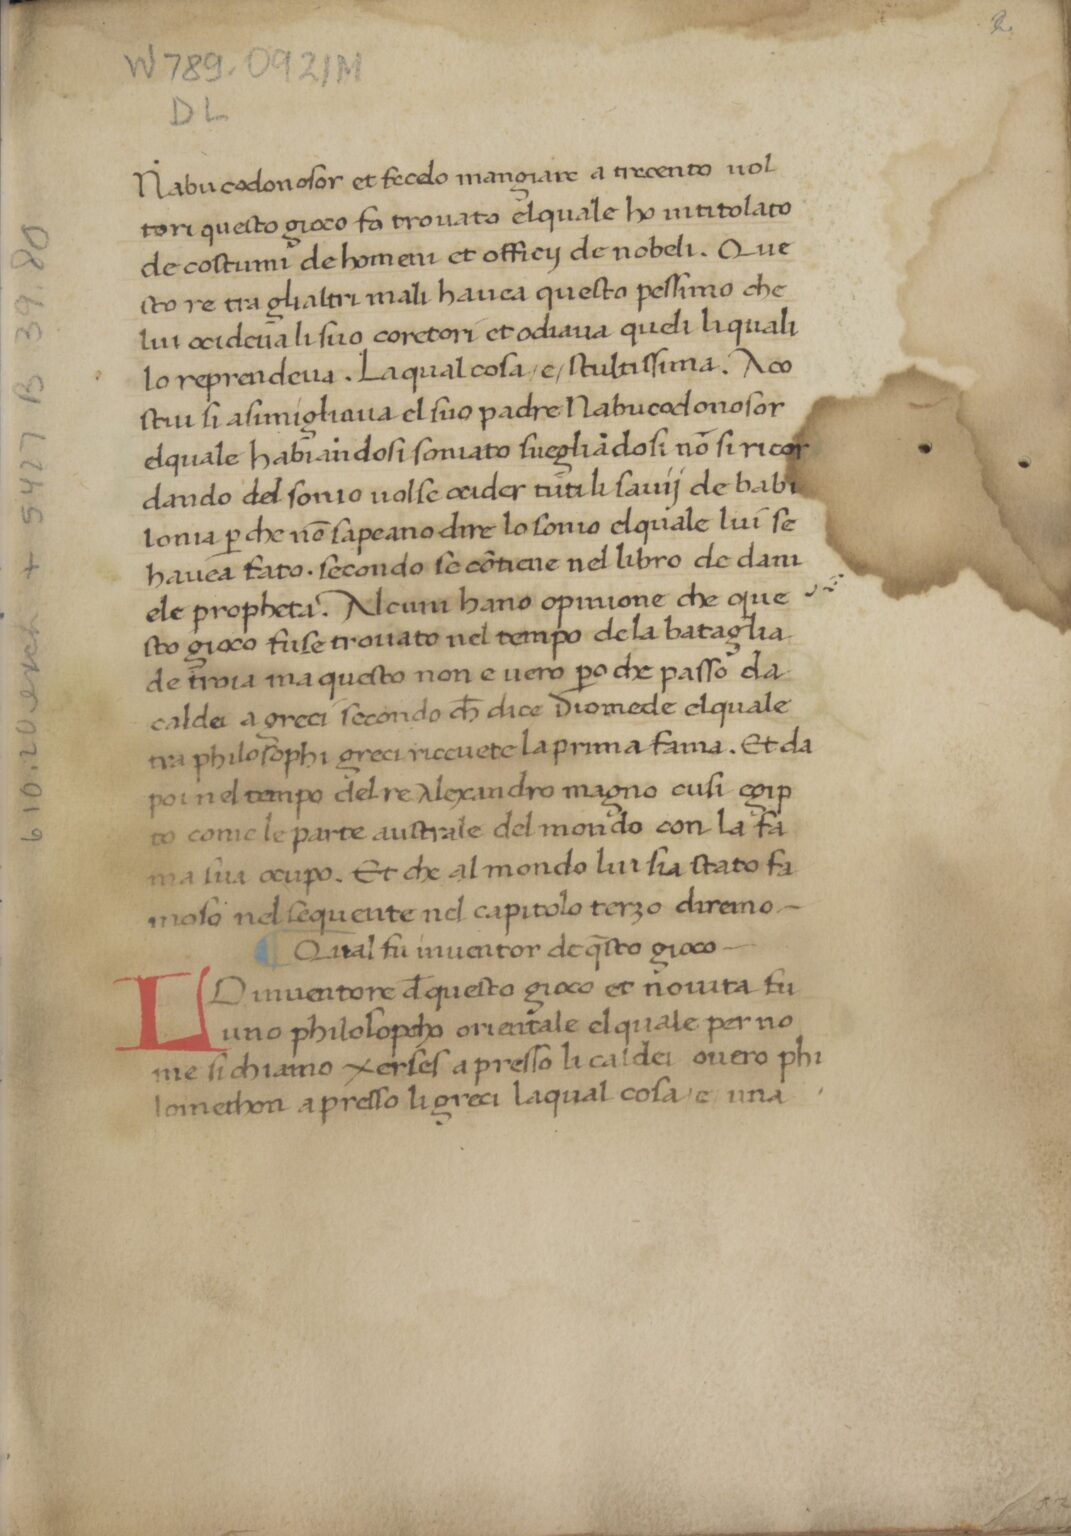 2.
W 789.0921M
DL
610.20 exch + 5427 B 39.80
Nabucodonosor et fecelo mangiare a trecento uol
tori questo gioco fo trouato elquale ho intitolato
de costumi de homeni et officij de nobeli. Que
sto re tra glialtri mali hauea questo pessimo che
lui ocideua li suo coretori et odiaua queli liquali
lo reprendeua. Laqual cosa /e/ stultissima. A co
stui si asimigliaua el suo padre Nabucodonosor
elquale habiandosi soniato suegliādosi nō si ricor
dando del sonio uolse ocider tuti li sauij de babi
lonia ꝑ che nō sapeano dire lo sonio elquale lui se
hauea fato. secondo se cōtiene nel libro de dani
ele propheta. Alcuni hano opinione che que
sto gioco fuse trouato nel tempo de la bataglia
de troia ma questo non e uero ꝑo che passo da
caldei a greci secondo ch̄ dice Diomede elquale
tra philosophi greci riceuete la prima fama. Et da
poi nel tempo del re Alexandro magno cusi egip
to come le parte australe del mondo con la fa
ma sua ocupo. Et che al mondo lui sia stato fa
moso nel sequente nel capitolo terzo diremo –
¶ Qual fu inuentor de q̄sto gioco –
LO inuentore d̄ questo gioco et nouita fu
uno philosopho orientale elquale per no
me si chiamo Xerses apresso li caldei ouero phi
lomethon apresso li greci laqual cosa /e/ una